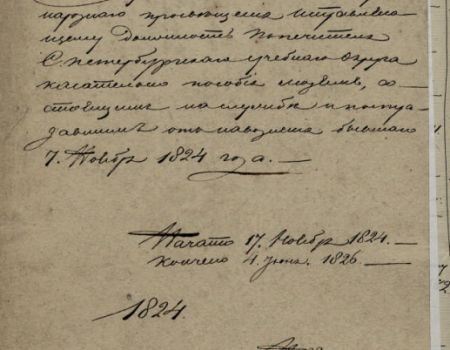 народнаго просвещенія исправляю-
щему Должность Попечителя
С. петербургскаго учебнаго округа
касательно пособія людямъ, со-
стоящимъ на службѣ и постра-
давшимъ отъ наводненія бывшаго
7. Ноября 1824 года. —
Начато 17. Ноября 1824. —
кончено 4. Іюня. 1826. —
1824.